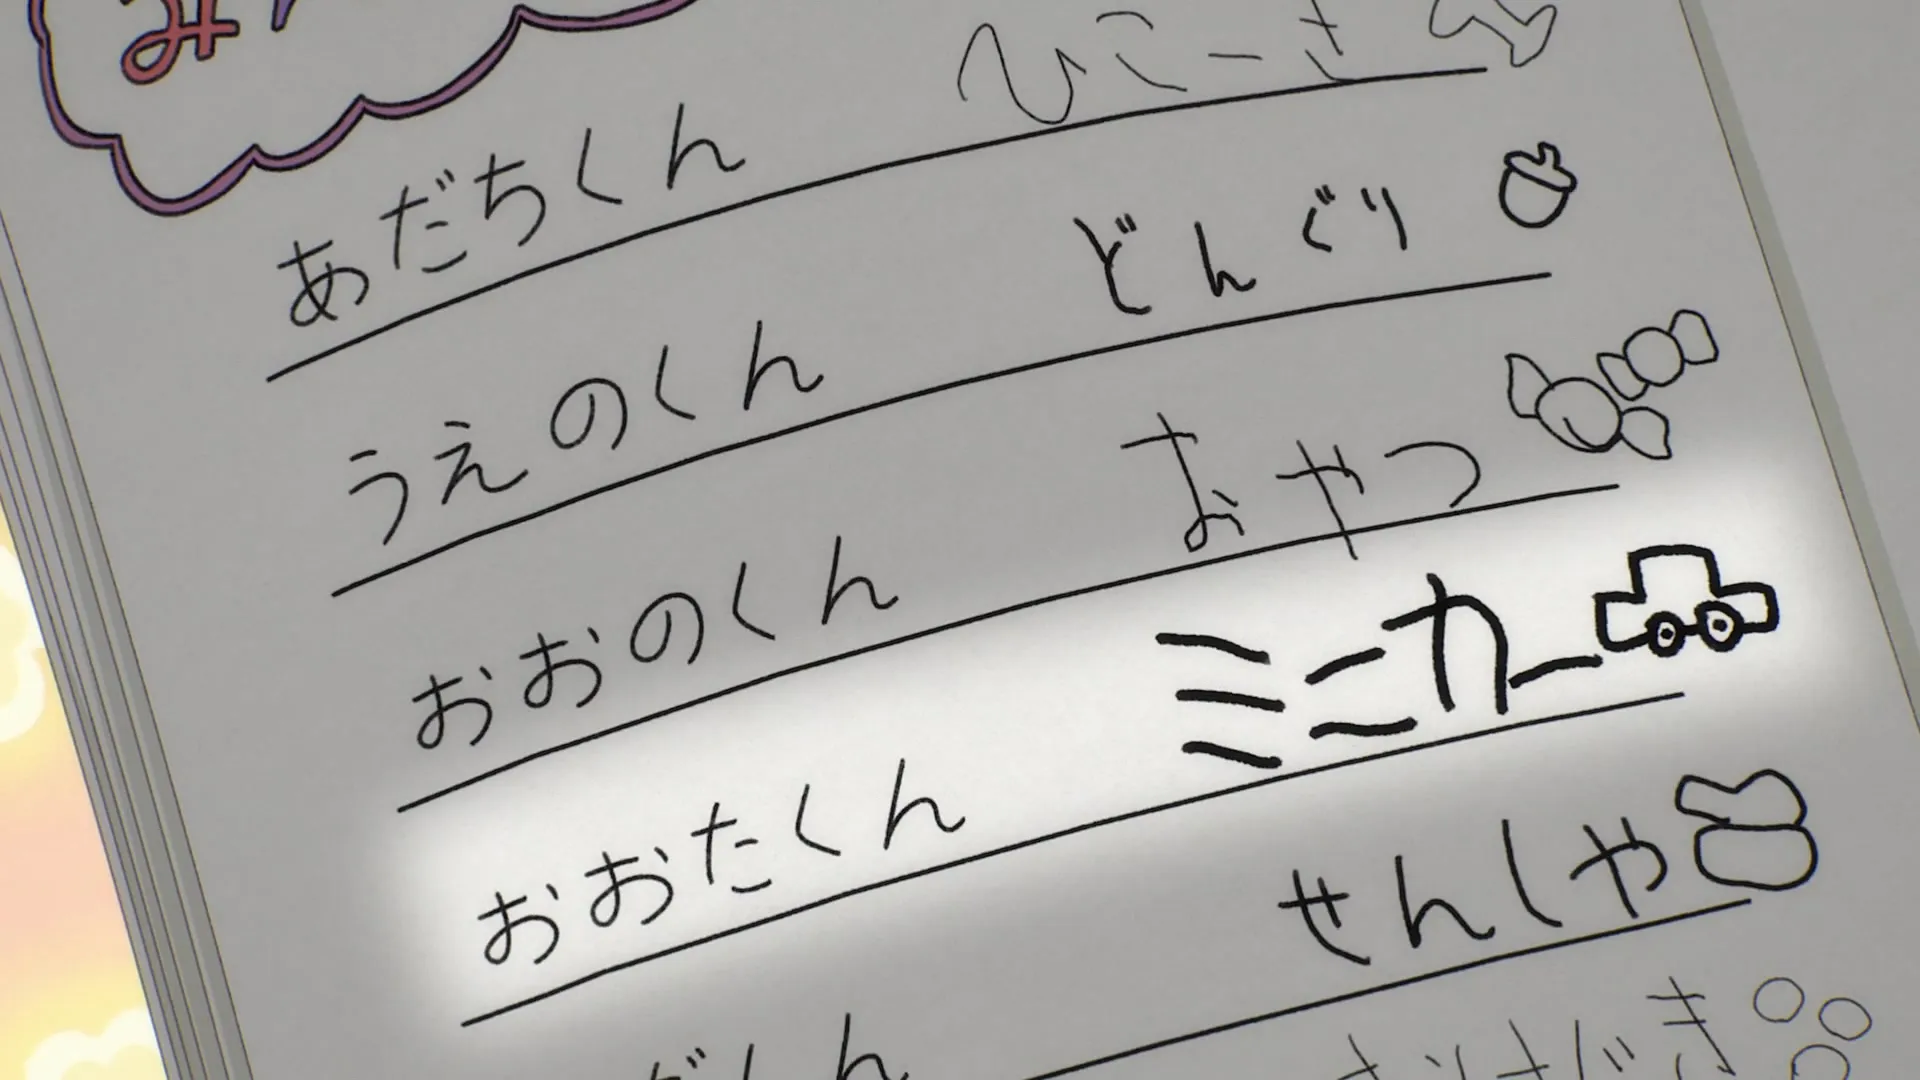 あだちくん ひこーき
うえのくん どんぐり
おおのくん おやつ
おおたくん ミニカー
くん せんしや